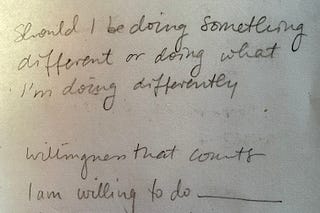 Should I be doing something
different or doing what
I'm doing differently
willingness that counts
I am willing to do ______